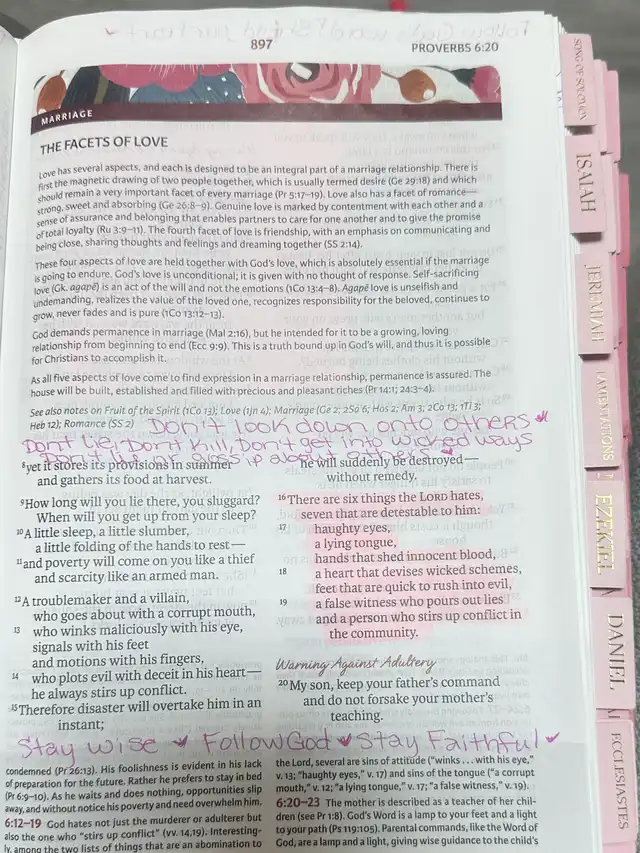 897
PROVERBS 6:20
MARRIAGE
THE FACETS OF LOVE
Love has several aspects, and each is designed to be an integral part of a marriage relationship. There is
first the magnetic drawing of two people together, which is usually termed desire (Ge 29:18) and which
should remain a very important facet of every marriage (Pr 5:17–19). Love also has a facet of romance—
strong, sweet and absorbing (Ge 26:8–9). Genuine love is marked by contentment with each other and a
sense of assurance and belonging that enables partners to care for one another and to give the promise
of total loyalty (Ru 3:9–11). The fourth facet of love is friendship, with an emphasis on communicating and
being close, sharing thoughts and feelings and dreaming together (SS 2:14).
These four aspects of love are held together with God's love, which is absolutely essential if the marriage
is going to endure. God's love is unconditional; it is given with no thought of response. Self-sacrificing
love (Gk. agapē) is an act of the will and not the emotions (1Co 13:4–8). Agapē love is unselfish and
undemanding, realizes the value of the loved one, recognizes responsibility for the beloved, continues to
grow, never fades and is pure (1Co 13:12–13).
God demands permanence in marriage (Mal 2:16), but he intended for it to be a growing, loving
relationship from beginning to end (Ecc 9:9). This is a truth bound up in God's will, and thus it is possible
for Christians to accomplish it.
As all five aspects of love come to find expression in a marriage relationship, permanence is assured. The
house will be built, established and filled with precious and pleasant riches (Pr 14:1; 24:3–4).
See also notes on Fruit of the Spirit (1Co 13); Love (1Jn 4); Marriage (Ge 2; 2Sa 6; Hos 2; Am 3; 2Co 13; 1Ti 3;
Heb 12); Romance (SS 2)
Don't look down onto others
Dont lie, Don't kill, Don't get into wicked ways
Don't lie or gossip about others
8yet it stores its provisions in summer
and gathers its food at harvest.
9How long will you lie there, you sluggard?
When will you get up from your sleep?
10A little sleep, a little slumber,
a little folding of the hands to rest—
11and poverty will come on you like a thief
and scarcity like an armed man.
12A troublemaker and a villain,
who goes about with a corrupt mouth,
13 who winks maliciously with his eye,
signals with his feet
and motions with his fingers,
14 who plots evil with deceit in his heart—
he always stirs up conflict.
15Therefore disaster will overtake him in an
instant;
he will suddenly be destroyed—
without remedy.
16There are six things the LORD hates,
seven that are detestable to him:
17 haughty eyes,
a lying tongue,
hands that shed innocent blood,
18 a heart that devises wicked schemes,
feet that are quick to rush into evil,
19 a false witness who pours out lies
and a person who stirs up conflict in
the community.
Warning Against Adultery
20My son, keep your father's command
and do not forsake your mother's
teaching.
Stay wise Follow God Stay Faithful
condemned (Pr 26:13). His foolishness is evident in his lack
of preparation for the future. Rather he prefers to stay in bed
(Pr 6:9–10). As he waits and does nothing, opportunities slip
away, and without notice his poverty and need overwhelm him.
6:12–19 God hates not just the murderer or adulterer but
also the one who "stirs up conflict" (vv. 14,19). Interesting-
ly, among the two lists of things that are an abomination to
the Lord, several are sins of attitude ("winks . . . with his eye,"
v. 13; "haughty eyes," v. 17) and sins of the tongue ("a corrupt
mouth," v. 12; "a lying tongue," v. 17; "a false witness," v. 19).
6:20–23 The mother is described as a teacher of her chil-
dren (see Pr 1:8). God's Word is a lamp to your feet and a light
to your path (Ps 119:105). Parental commands, like the Word of
God, are a lamp and a light, giving wise guidance to the child's
SONG OF SOLOMON
ISAIAH
JEREMIAH
LAMENTATIONS
EZEKIEL
DANIEL
ECCLESIASTES